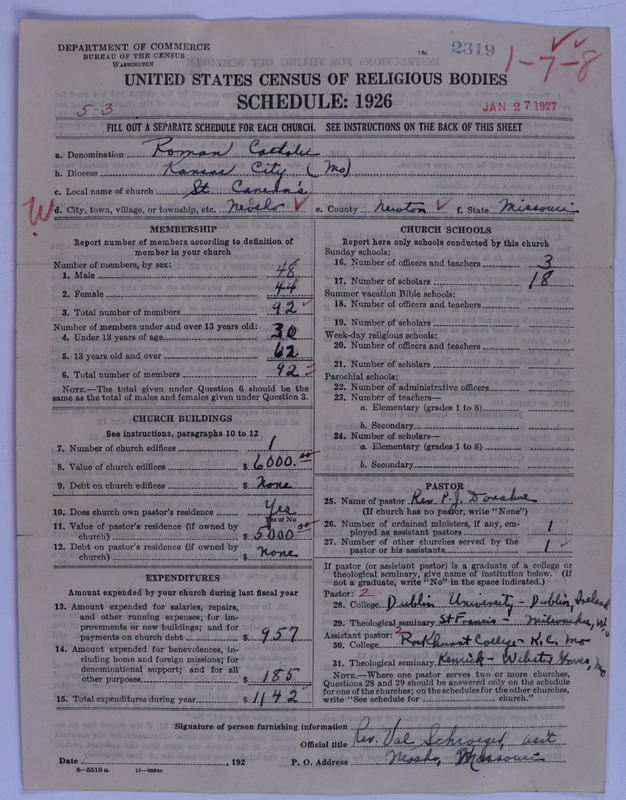 DEPARTMENT OF COMMERCE
BUREAU OF THE CENSUS
WASHINGTON
2319
1-7-8
UNITED STATES CENSUS OF RELIGIOUS BODIES
SCHEDULE: 1926
5-3
JAN 27 1927
FILL OUT A SEPARATE SCHEDULE FOR EACH CHURCH. SEE INSTRUCTIONS ON THE BACK OF THIS SHEET
a. Denomination Roman Catholic
b. Diocese Kansas City (Mo)
c. Local name of church St. Canera's
d. City, town, village, or township, etc. Neosho e. County Newton f. State Missouri
MEMBERSHIP
Report number of members according to definition of
member in your church
Number of members, by sex:
1. Male 48
2. Female 44
3. Total number of members 92
Number of members under and over 13 years old:
4. Under 13 years of age 30
5. 13 years old and over 62
6. Total number of members 92
NOTE.—The total given under Question 6 should be the
same as the total of males and females given under Question 3.
CHURCH BUILDINGS
See instructions, paragraphs 10 to 12
7. Number of church edifices 1
8. Value of church edifices $ 6000.00
9. Debt on church edifices $ None
10. Does church own pastor's residence Yes
Yes or No
11. Value of pastor's residence (if owned by
church) $ 5000.00
12. Debt on pastor's residence (if owned by
church) $ None
EXPENDITURES
Amount expended by your church during last fiscal year
13. Amount expended for salaries, repairs,
and other running expenses; for im-
provements or new buildings; and for
payments on church debt $ 957
14. Amount expended for benevolences, in-
cluding home and foreign missions; for
denominational support; and for all
other purposes $ 185
15. Total expenditures during year $ 1142
CHURCH SCHOOLS
Report here only schools conducted by this church
Sunday schools:
16. Number of officers and teachers 3
17. Number of scholars 18
Summer vacation Bible schools:
18. Number of officers and teachers
19. Number of scholars
Week-day religious schools:
20. Number of officers and teachers
21. Number of scholars
Parochial schools:
22. Number of administrative officers
23. Number of teachers—
a. Elementary (grades 1 to 8)
b. Secondary
24. Number of scholars—
a. Elementary (grades 1 to 8)
b. Secondary
PASTOR
25. Name of pastor Rev. P. J. Donahue
(If church has no pastor, write "None")
26. Number of ordained ministers, if any, em-
ployed as assistant pastors 1
27. Number of other churches served by the
pastor or his assistants 1
If pastor (or assistant pastor) is a graduate of a college or
theological seminary, give name of institution below. (If
not a graduate, write "No" in the space indicated.)
Pastor: 2
28. College Dublin University - Dublin, Ireland
29. Theological seminary St Francis - Milwaukee, Wis
Assistant pastor: 2
30. College Rockhurst College - K.C. Mo
31. Theological seminary Kenrick - Webster Groves, Mo
NOTE.—Where one pastor serves two or more churches,
Questions 28 and 29 should be answered only on the schedule
for one of the churches; on the schedules for the other churches,
write "See schedule for church."
Signature of person furnishing information Rev. Val Schroegel, asst
Official title
Date , 192 P. O. Address Neosho, Missouri
8-5518a 11-8554